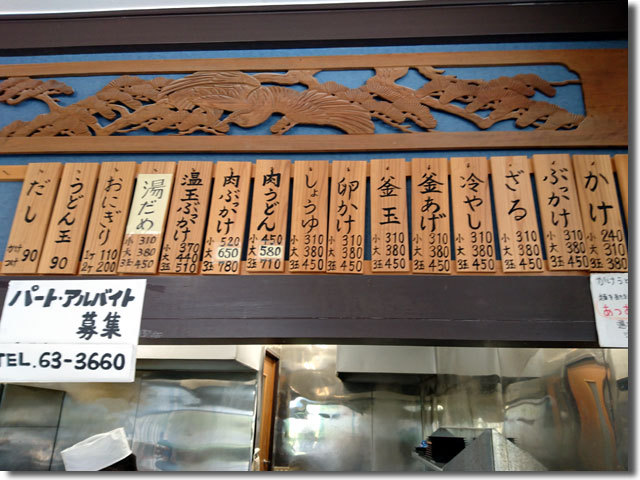 かけ
小 240
大 310
3玉 380
ぶっかけ
小 310
大 380
3玉 450
ざる
小 310
大 380
3玉 450
冷やし
小 310
大 380
3玉 450
釜あげ
小 310
大 380
3玉 450
釜玉
小 310
大 380
3玉 450
卵かけ
小 310
大 380
3玉 450
しょうゆ
小 310
大 380
3玉 450
肉うどん
小 450
大 580
3玉 710
肉ぶっかけ
小 520
大 650
3玉 780
温玉ぶっかけ
小 370
大 440
3玉 510
湯だめ
小 310
大 380
3玉 450
おにぎり
1ケ 110
2ケ 200
うどん玉
90
だし
かけ
つけ 90
パート・アルバイト
募集
TEL. 63-3660
かけう
あつあ